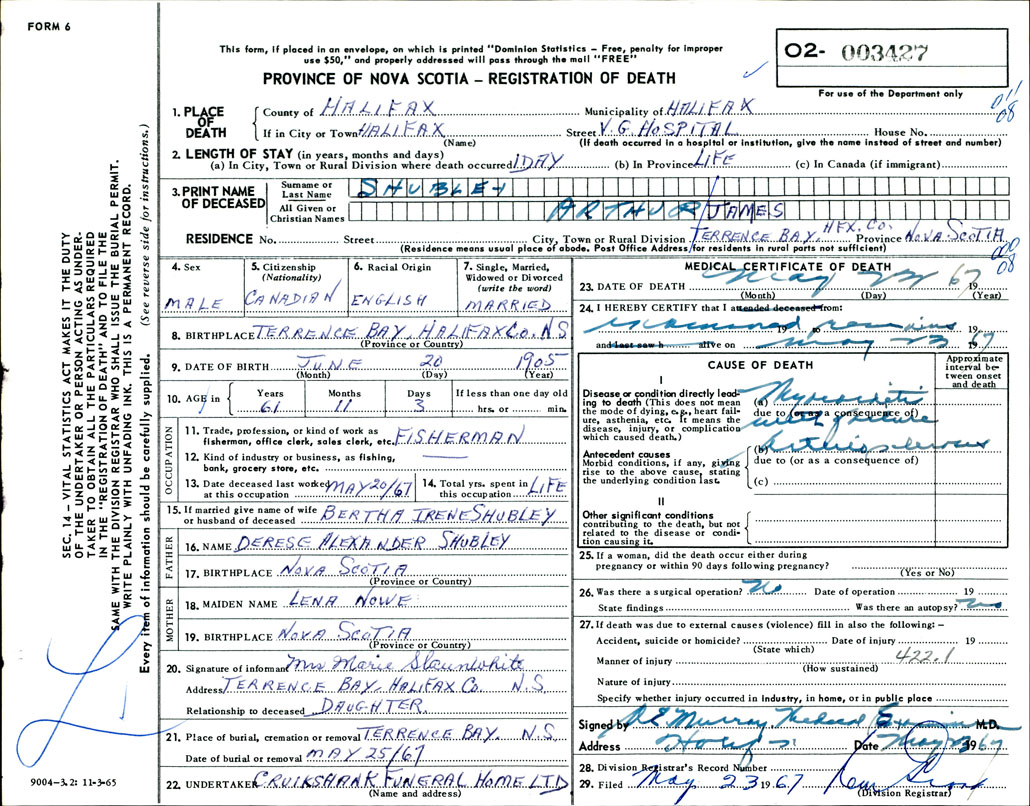 FORM 6
This form, if placed in an envelope, on which is printed "Dominion Statistics – Free, penalty for improper
use $50," and properly addressed will pass through the mail "FREE"
PROVINCE OF NOVA SCOTIA – REGISTRATION OF DEATH
02- 003427
For use of the Department only
SEC. 14 – VITAL STATISTICS ACT MAKES IT THE DUTY
OF THE UNDERTAKER OR PERSON ACTING AS UNDER-
TAKER TO OBTAIN ALL THE PARTICULARS REQUIRED
IN THE "REGISTRATION OF DEATH" AND TO FILE THE
SAME WITH THE DIVISION REGISTRAR WHO SHALL ISSUE THE BURIAL PERMIT.
WRITE PLAINLY WITH UNFADING INK. THIS IS A PERMANENT RECORD.
Every item of information should be carefully supplied. (See reverse side for instructions.)
1. PLACE OF DEATH
County of HALIFAX Municipality of HALIFAX
011
08
If in City or Town HALIFAX Street V.G. HOSPITAL House No.
(Name) (If death occurred in a hospital or institution, give the name instead of street and number)
2. LENGTH OF STAY (in years, months and days)
(a) In City, Town or Rural Division where death occurred 1 DAY (b) In Province LIFE (c) In Canada (if immigrant)
3. PRINT NAME OF DECEASED
Surname or Last Name SHUBLEY
All Given or Christian Names ARTHUR JAMES
RESIDENCE No. Street City, Town or Rural Division TERRENCE BAY, HFX. CO. Province NOVA SCOTIA
(Residence means usual place of abode. Post Office Address for residents in rural parts not sufficient)
08
4. Sex
MALE
5. Citizenship (Nationality)
CANADIAN
6. Racial Origin
ENGLISH
7. Single, Married, Widowed or Divorced (write the word)
MARRIED
8. BIRTHPLACE TERRENCE BAY, HALIFAX CO. N.S
(Province or Country)
9. DATE OF BIRTH JUNE 20 1905
(Month) (Day) (Year)
10. AGE in Years Months Days If less than one day old
61 11 3 hrs. or min.
OCCUPATION
11. Trade, profession, or kind of work as
fisherman, office clerk, sales clerk, etc. FISHERMAN
12. Kind of industry or business, as fishing,
bank, grocery store, etc.
13. Date deceased last worked at this occupation MAY 20/67
14. Total yrs. spent in this occupation LIFE
15. If married give name of wife
or husband of deceased BERTHA IRENE SHUBLEY
FATHER
16. NAME DERESE ALEXANDER SHUBLEY
17. BIRTHPLACE NOVA SCOTIA
(Province or Country)
MOTHER
18. MAIDEN NAME LENA NOWE
19. BIRTHPLACE NOVA SCOTIA
(Province or Country)
20. Signature of informant Mrs Marie Slaunwhite
Address TERRENCE BAY, HALIFAX CO. N.S.
Relationship to deceased DAUGHTER
21. Place of burial, cremation or removal TERRENCE BAY. N.S.
Date of burial or removal MAY 25/67
22. UNDERTAKER CRUIKSHANK FUNERAL HOME LTD
(Name and address)
9004–3.2: 11-3-65
MEDICAL CERTIFICATE OF DEATH
23. DATE OF DEATH May 23 1967
(Month) (Day) (Year)
24. I HEREBY CERTIFY that I attended deceased from:
examined remains 19 to 19
and last saw h alive on May 23 1967
CAUSE OF DEATH
Approximate interval between onset and death
I
Disease or condition directly lead-
ing to death (This does not mean
the mode of dying, e.g., heart fail-
ure, asthenia, etc. It means the
disease, injury, or complication
which caused death.)
(a) Myocarditis
due to (or as a consequence of)
Antecedent causes
Morbid conditions, if any, giving
rise to the above cause, stating
the underlying condition last.
(b)
due to (or as a consequence of)
(c)
II
Other significant conditions
contributing to the death, but not
related to the disease or condi-
tion causing it.
25. If a woman, did the death occur either during
pregnancy or within 90 days following pregnancy?
(Yes or No)
26. Was there a surgical operation? No Date of operation 19
State findings Was there an autopsy? No
27. If death was due to external causes (violence) fill in also the following: –
Accident, suicide or homicide? Date of injury 19
(State which)
Manner of injury 422.1
(How sustained)
Nature of injury
Specify whether injury occurred in industry, in home, or in public place
Signed by Murray Medical Examiner M.D.
Address Date May 23 1967
28. Division Registrar's Record Number
29. Filed May 23 1967
(Division Registrar)